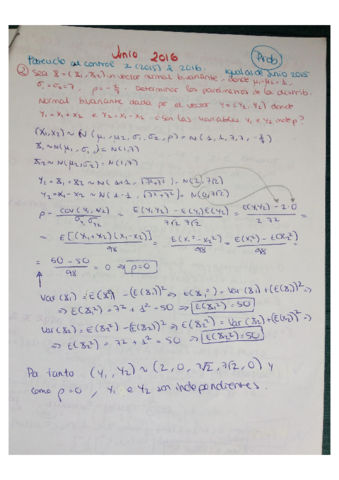 Junio 2016
Parecido al control 2 (2015) & 2016. Igual al de Junio 2015
Prob
② Sea X = (X₁, X₂) un vector normal bivariante, donde μ₁=μ₂=1,
σ₁=σ₂=7, ρ= Determinar los parámetros de la distrib.
normal bivariante dada por el vector Y=(Y₁, Y₂) donde
Y₁ = X₁ + X₂ e Y₂ = X₁ - X₂ ¿Son las variables Y₁ e Y₂ indep?
(X₁, X₂) ~ N(μ₁, μ₂, σ₁, σ₂, ρ) = N(1, 1, 7, 7,
X₁ ~ N(μ₁, σ₁) = N(1,7)
X₂ ~ N(μ₂, σ₂) = N(1,7)
Y₁ = X₁ + X₂ ~ N(1+1, √7²+7²) = N(2, 7√2)
Y₂ = X₁ - X₂ ~ N(1-1, √7²+7²) = N(0, 7√2)
ρ = cov(Y₁, Y₂) / σ σ = E(Y₁Y₂) - E(Y₁)E(Y₂) / 7√2 7√2 = E(Y₁Y₂) - 2·0 / 2·7²
= E[(X₁+X₂)(X₁-X₂)] / 98 = E(X₁² - X₂²) / 98 = E(X₁²) - E(X₂²) / 98 =
= 50 - 50 / 98 = 0 ⇒ ρ=0
Var(X₁) = E(X₁²) - (E(X₁))² ⇒ E(X₁²) = Var(X₁) + (E(X₁))² ⇒
⇒ E(X₁²) = 7² + 1² = 50 ⇒ E(X₁²) = 50
Var(X₂) = E(X₂²) - (E(X₂))² ⇒ E(X₂²) = Var(X₂) + (E(X₂))² ⇒
⇒ E(X₂²) = 7² + 1² = 50 ⇒ E(X₂²) = 50
Por tanto (Y₁, Y₂) ~ (2, 0, 7√2, 7√2, 0) y
como ρ=0, Y₁ e Y₂ son independientes.